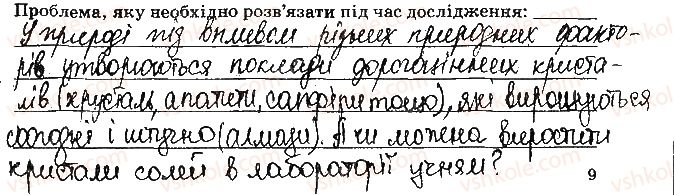 Проблема, яку необхідно розв'язати під час дослідження:
У природі під впливом різних природних факто-
рів утворюються поклади дорогоцінних криста-
лів (кришталь, апатити, сапфіри тощо), які вирощуються
сьогодні і штучно (алмази). А чи можна виростити
кристали солей в лабораторії учням?
9